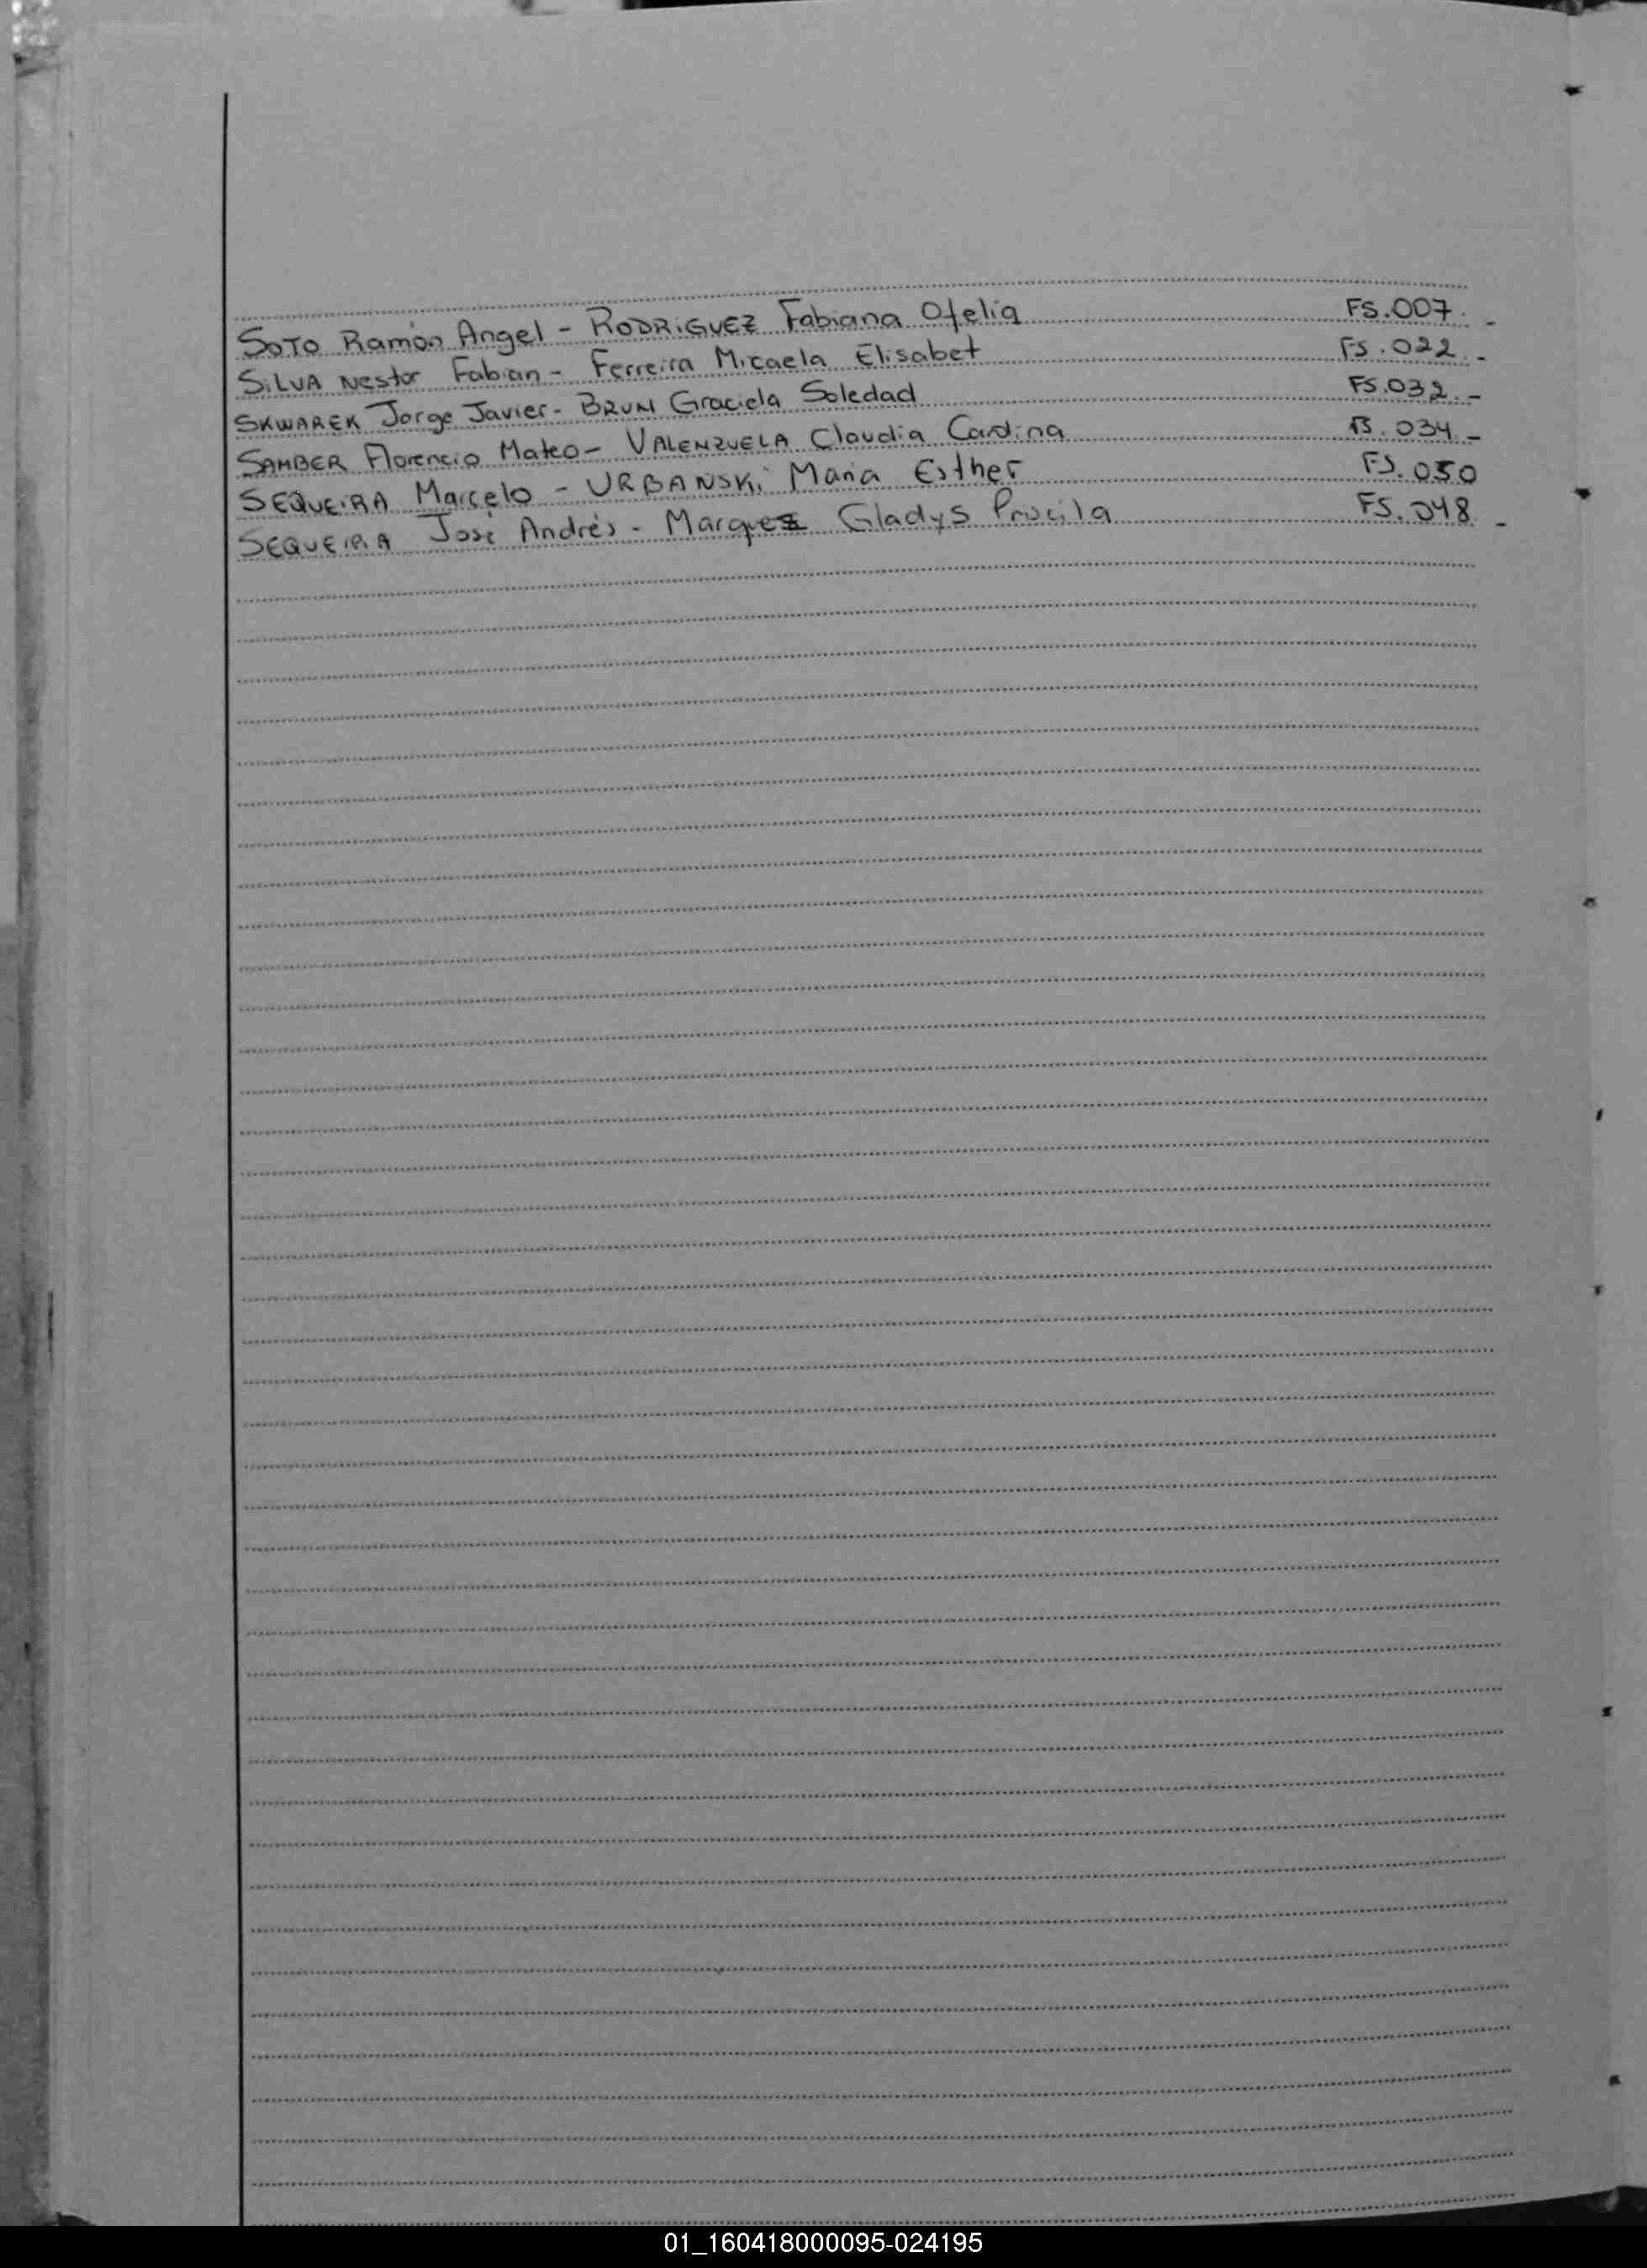 SOTO Ramón Angel - RODRIGUEZ Fabiana Ofelia FS.007.-
SILVA Nestor Fabian - Ferreira Micaela Elisabet FS.022.-
SKWAREK Jorge Javier - BRUN Graciela Soledad FS.032.-
SAMBER Florencio Mateo - VALENZUELA Claudia Carolina FS.034.-
SEQUEIRA Marcelo - URBANSKI Maria Esther FS.050
SEQUEIRA José Andrés - Marquez Gladys Priscila FS.048.-
01_160418000095-024195